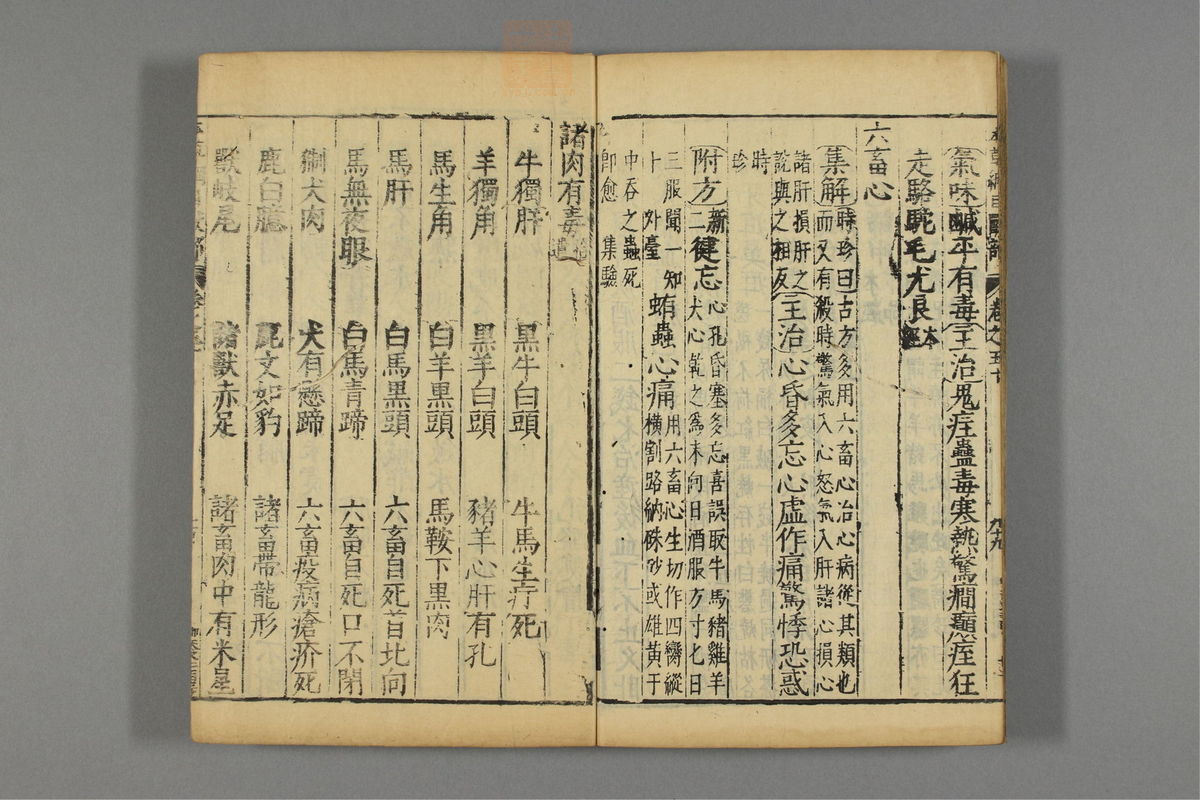 氣味鹹平有毒主治鬼疰蠱毒寒熱驚癎癲痓狂
走駱駝毛尤良本經
六畜心
集解時珍曰古方多用六畜心治心病從其類也
而又有殺時驚氣入心怒氣入肝諸心損心
諸肝損肝之
說與之相反
主治心昏多忘心虛作痛驚悸恐惑
時
珍
附方新二健忘心孔昏塞多忘喜誤取牛馬豬雞羊
犬心乾之爲末向日酒服方寸匕日
三服聞一知
十外臺
蛕蟲心痛用六畜心生切作四臠縱
橫割路納硃砂或雄黃于
中吞之蟲死
卽愈 集驗
諸肉有毒拾遺
牛獨肝 黑牛白頭 牛馬生疔死
羊獨角 黑羊白頭 豬羊心肝有孔
馬生角 白羊黑頭 馬鞍下黑肉
馬肝 白馬黑頭 六畜自死首北向
馬無夜眼 白馬青蹄 六畜自死口不閉
猘犬肉 犬有懸蹄 六畜疫病瘡疥死
鹿白臆 鹿文如豹 諸畜帶龍形
獸岐尾 諸獸赤足 諸畜肉中有米星